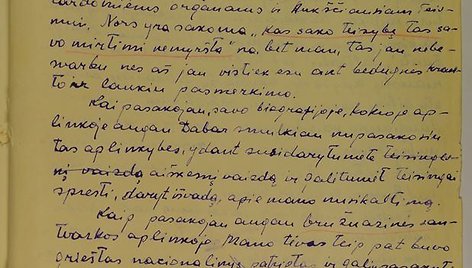 organams ir Aukščiausiam Teis-
mui. Nors yra sakoma, "Kas sako teisybę tas sa-
vo mirtimi nemiršta" na, bet man tas jau nebe-
svarbu nes aš jau vistiek esu ant bedugnės kraš-
to ir laukiu pasmerkimo.
Kai pasakojau, savo biografijoje, kokioje ap-
linkoje augau dabar smulkiau nupasakosiu
tas aplinkybes, ydant susidarytumėte teisinges-
nį vaizdą aiškesnį vaizdą ir galitumėt teisingai
spręsti, daryt išvadą, apie mano nusikaltimą.
Kaip pasakojau augau buržuazinės san-
tvarkos aplinkoje. Mano tėvas taip pat buvo
griežtas nacionalinis patriotas ir